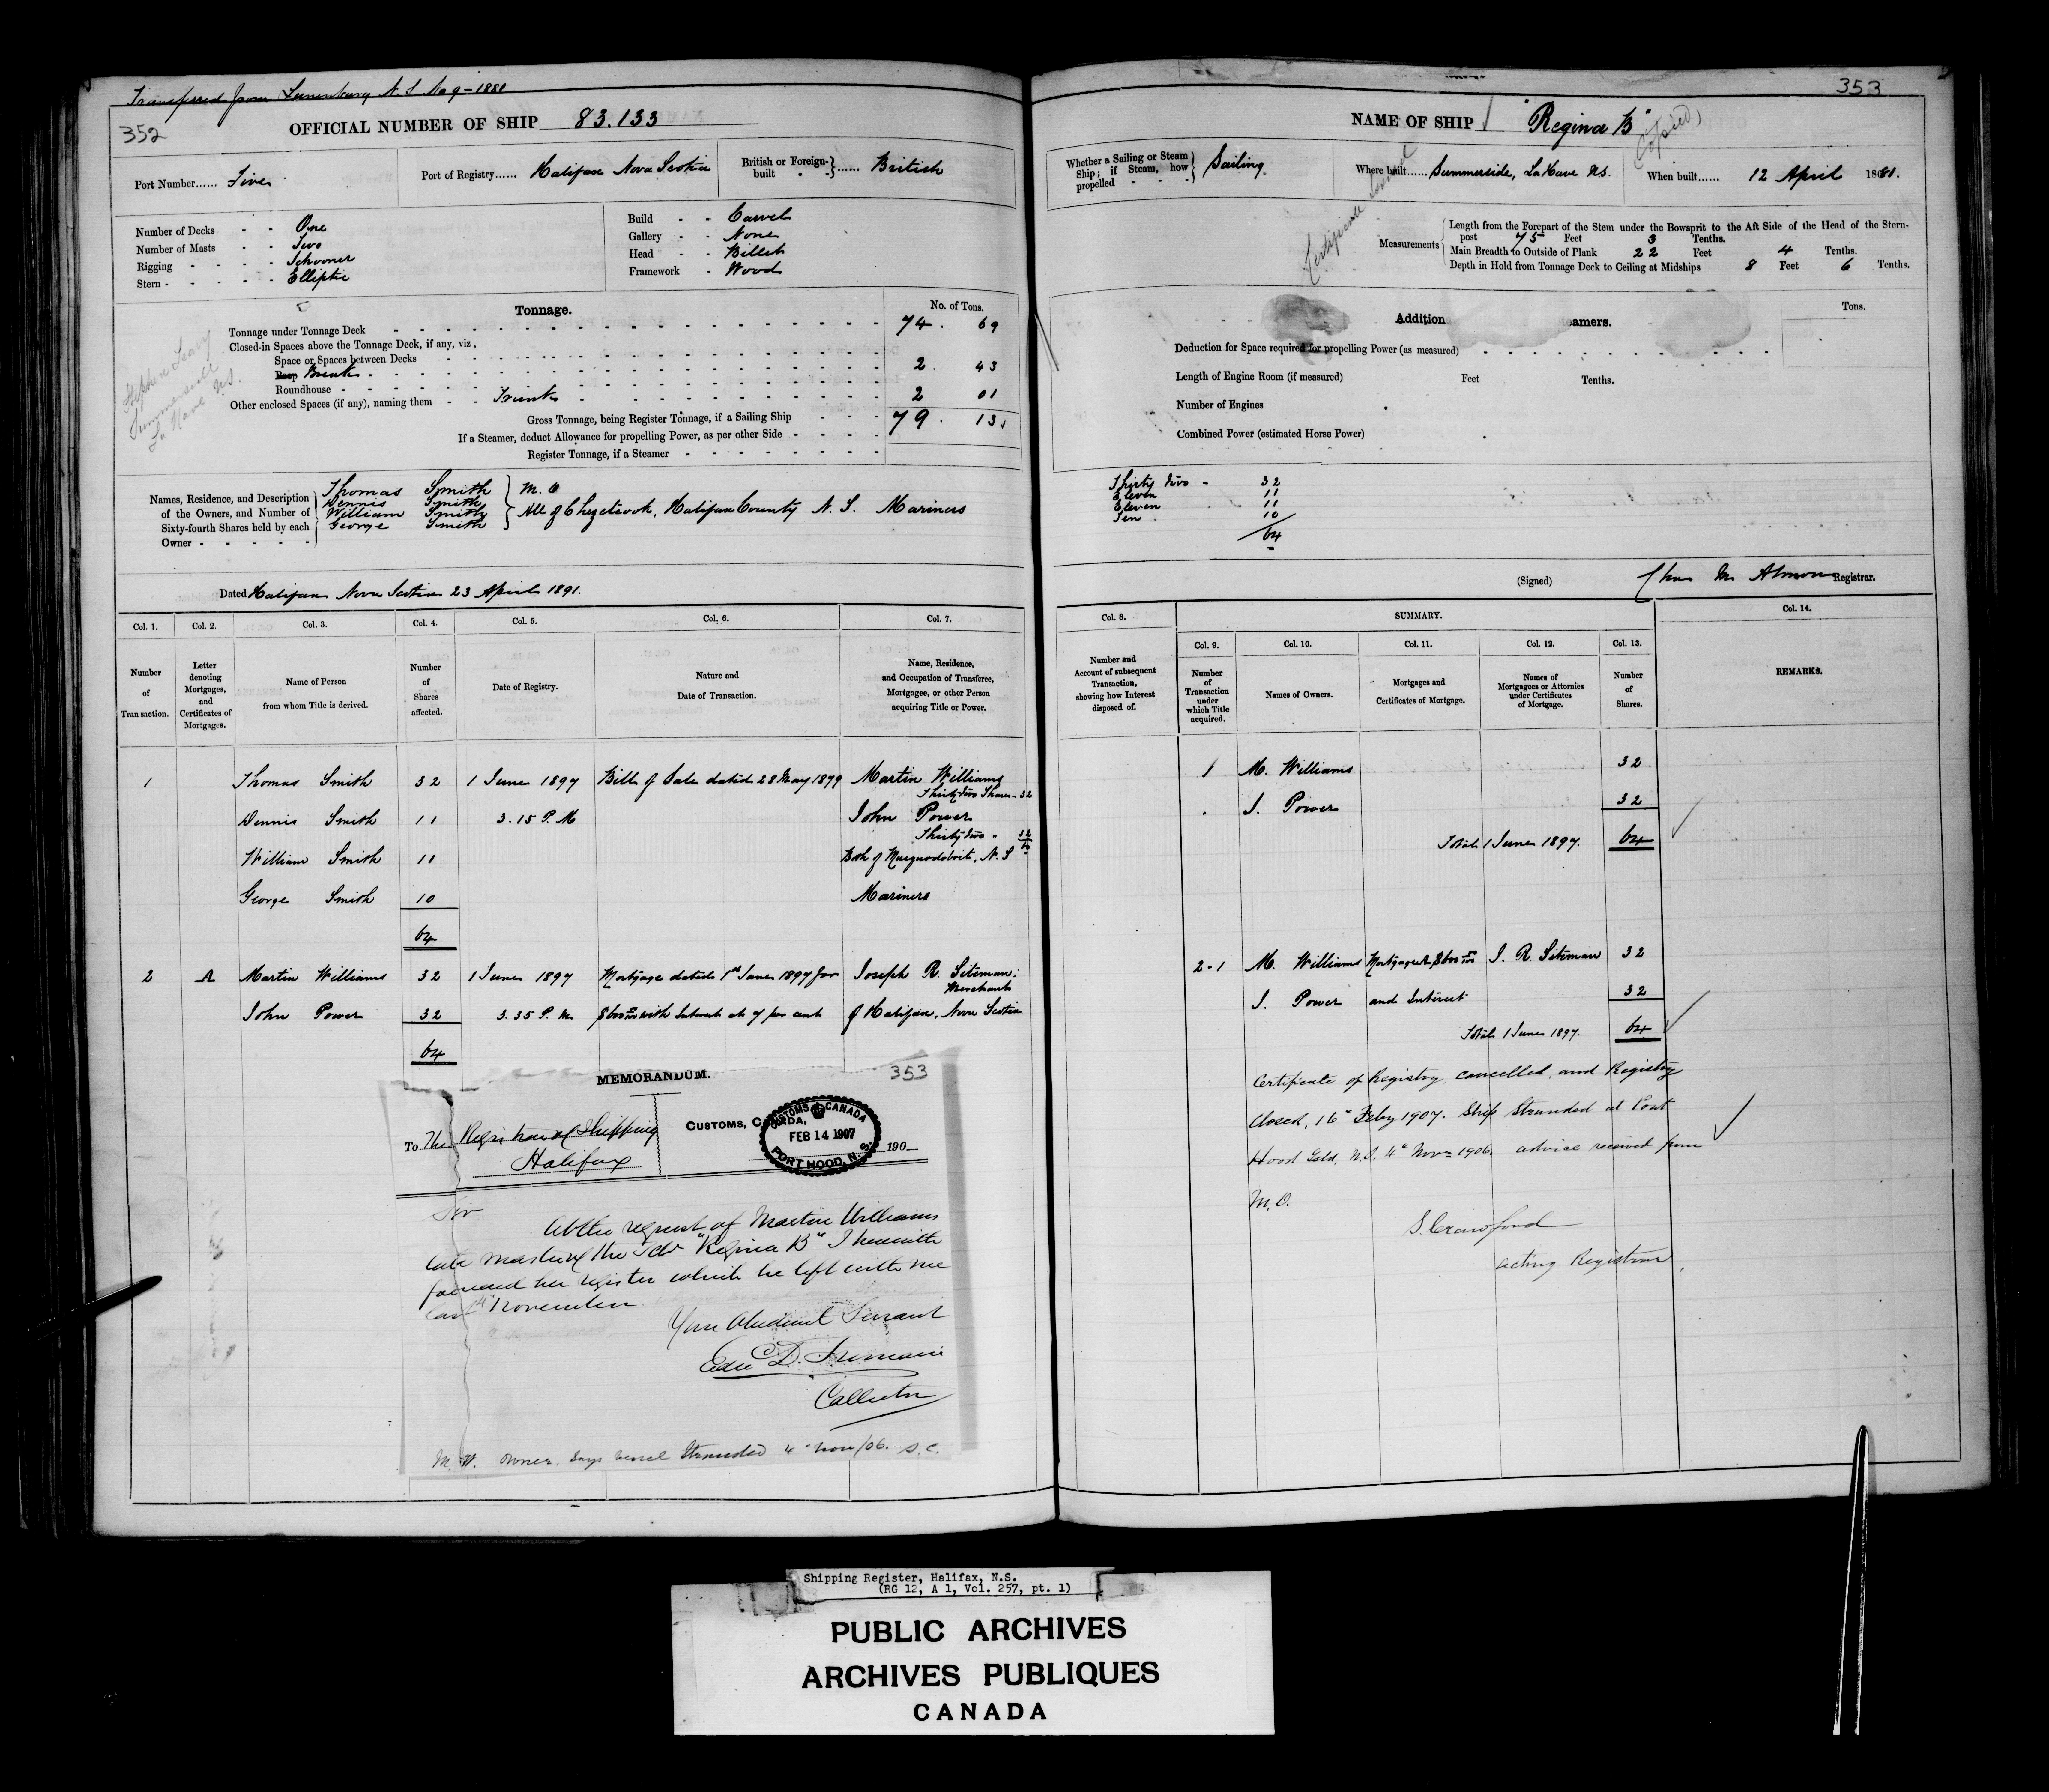 Transferred from Lunenburg N.S No 9-1881
352
OFFICIAL NUMBER OF SHIP 83.133
Port Number...... Five
Port of Registry...... Halifax Nova Scotia
British or Foreign-built ...... British
Number of Decks - - One
Number of Masts - - Two
Rigging - - - - Schooner
Stern - - - - - Elliptic
Build - - Carvel
Gallery - - None
Head - - Billet
Framework - Wood
Tonnage.
No. of Tons.
Tonnage under Tonnage Deck 74. 69
Closed-in Spaces above the Tonnage Deck, if any, viz,
Space or Spaces between Decks
Poop Break 2. 43
Roundhouse
Other enclosed Spaces (if any), naming them - - Trunk 2 01
Gross Tonnage, being Register Tonnage, if a Sailing Ship 79. 13
If a Steamer, deduct Allowance for propelling Power, as per other Side
Register Tonnage, if a Steamer
Stephen
Summerside
La Have N.S.
Names, Residence, and Description
of the Owners, and Number of
Sixty-fourth Shares held by each
Owner
Thomas Smith M.O
Dennis Smith
William Smith
George Smith
All of Chezetcook, Halifax County N.S. Mariners
Dated Halifax Nova Scotia 23 April 1891.
Col. 1. Col. 2. Col. 3. Col. 4. Col. 5. Col. 6. Col. 7.
Number of Transaction.
Letter denoting Mortgages, and Certificates of Mortgages.
Name of Person from whom Title is derived.
Number of Shares affected.
Date of Registry.
Nature and Date of Transaction.
Name, Residence, and Occupation of Transferee, Mortgagee, or other Person acquiring Title or Power.
1 Thomas Smith 32 1 June 1897 Bill of Sale dated 28 May 1879 Martin Williams
Thirty two Shares - 32
Dennis Smith 11 3.15 P.M John Power
Thirty two - 32
64
William Smith 11 Both of Musquodoboit, N.S
George Smith 10 Mariners
64
2 A Martin Williams 32 1 June 1897 Mortgage dated 1st June 1897 for Joseph R. Siteman.
Merchant
John Power 32 3.35 P.M with Interest at 7 per cent of Halifax, Nova Scotia
64
MEMORANDUM.
353
To The Registrar of Shipping
Halifax
CUSTOMS, CANADA,
190
CUSTOMS CANADA
FEB 14 1907
PORT HOOD, N.S.
Sir
At the request of Martin Williams
late master of the Schr "Regina B" I herewith
forward her register which he left with me
last November.
Your Obedient Servant
Collector
M.W. owner. Says vessel Stranded 4" Nov/06. S.C.
353
NAME OF SHIP "Regina B"
Certificate
Copied
Whether a Sailing or Steam Ship; if Steam, how propelled Sailing.
Where built...... Summerside, La Have N.S.
When built...... 12 April 1881.
Measurements
Length from the Forepart of the Stem under the Bowsprit to the Aft Side of the Head of the Stern-
post 75 Feet 3 Tenths.
Main Breadth to Outside of Plank 22 Feet 4 Tenths.
Depth in Hold from Tonnage Deck to Ceiling at Midships 8 Feet 6 Tenths.
Addition eamers.
Tons.
Deduction for Space required for propelling Power (as measured)
Length of Engine Room (if measured) Feet Tenths.
Number of Engines
Combined Power (estimated Horse Power)
Thirty two - 32
Eleven 11
Eleven 11
Ten 10
64
(Signed) Chas M. Almon Registrar.
Col. 8. SUMMARY. Col. 14.
Col. 9. Col. 10. Col. 11. Col. 12. Col. 13.
Number and Account of subsequent Transaction, showing how Interest disposed of.
Number of Transaction under which Title acquired.
Names of Owners.
Mortgages and Certificates of Mortgage.
Names of Mortgagees or Attornies under Certificates of Mortgage.
Number of Shares.
REMARKS.
1 M. Williams 32
J. Power 32
Total 1 June 1897. 64
2-1 M. Williams Mortgage A J. R. Siteman 32
J. Power and Interest 32
Total 1 June 1897. 64
Certificate of Registry cancelled, and Registry
Closed, 16" Feby 1907. Ship Stranded at Port
Hood Isld, N.S. 4" Nov 1906. advice received from
M.O.
S. Crawford
acting Registrar
Shipping Register, Halifax, N.S.
(RG 12, A 1, Vol. 257, pt. 1)
PUBLIC ARCHIVES
ARCHIVES PUBLIQUES
CANADA